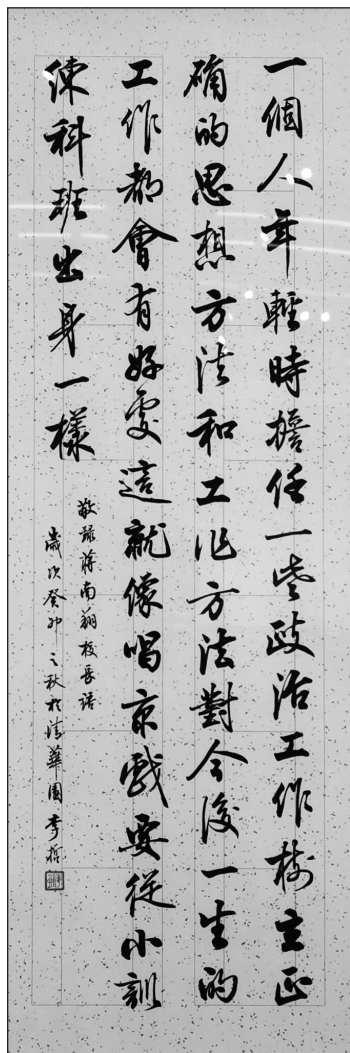 一個人年輕時擔任一些政治工作樹立正
確的思想方法和工作方法對今後一生的
工作都會有好處這就像唱京戲要從小訓
練科班出身一樣
敬錄蔣南翔校長語
歲次癸卯之秋於清華園李哲